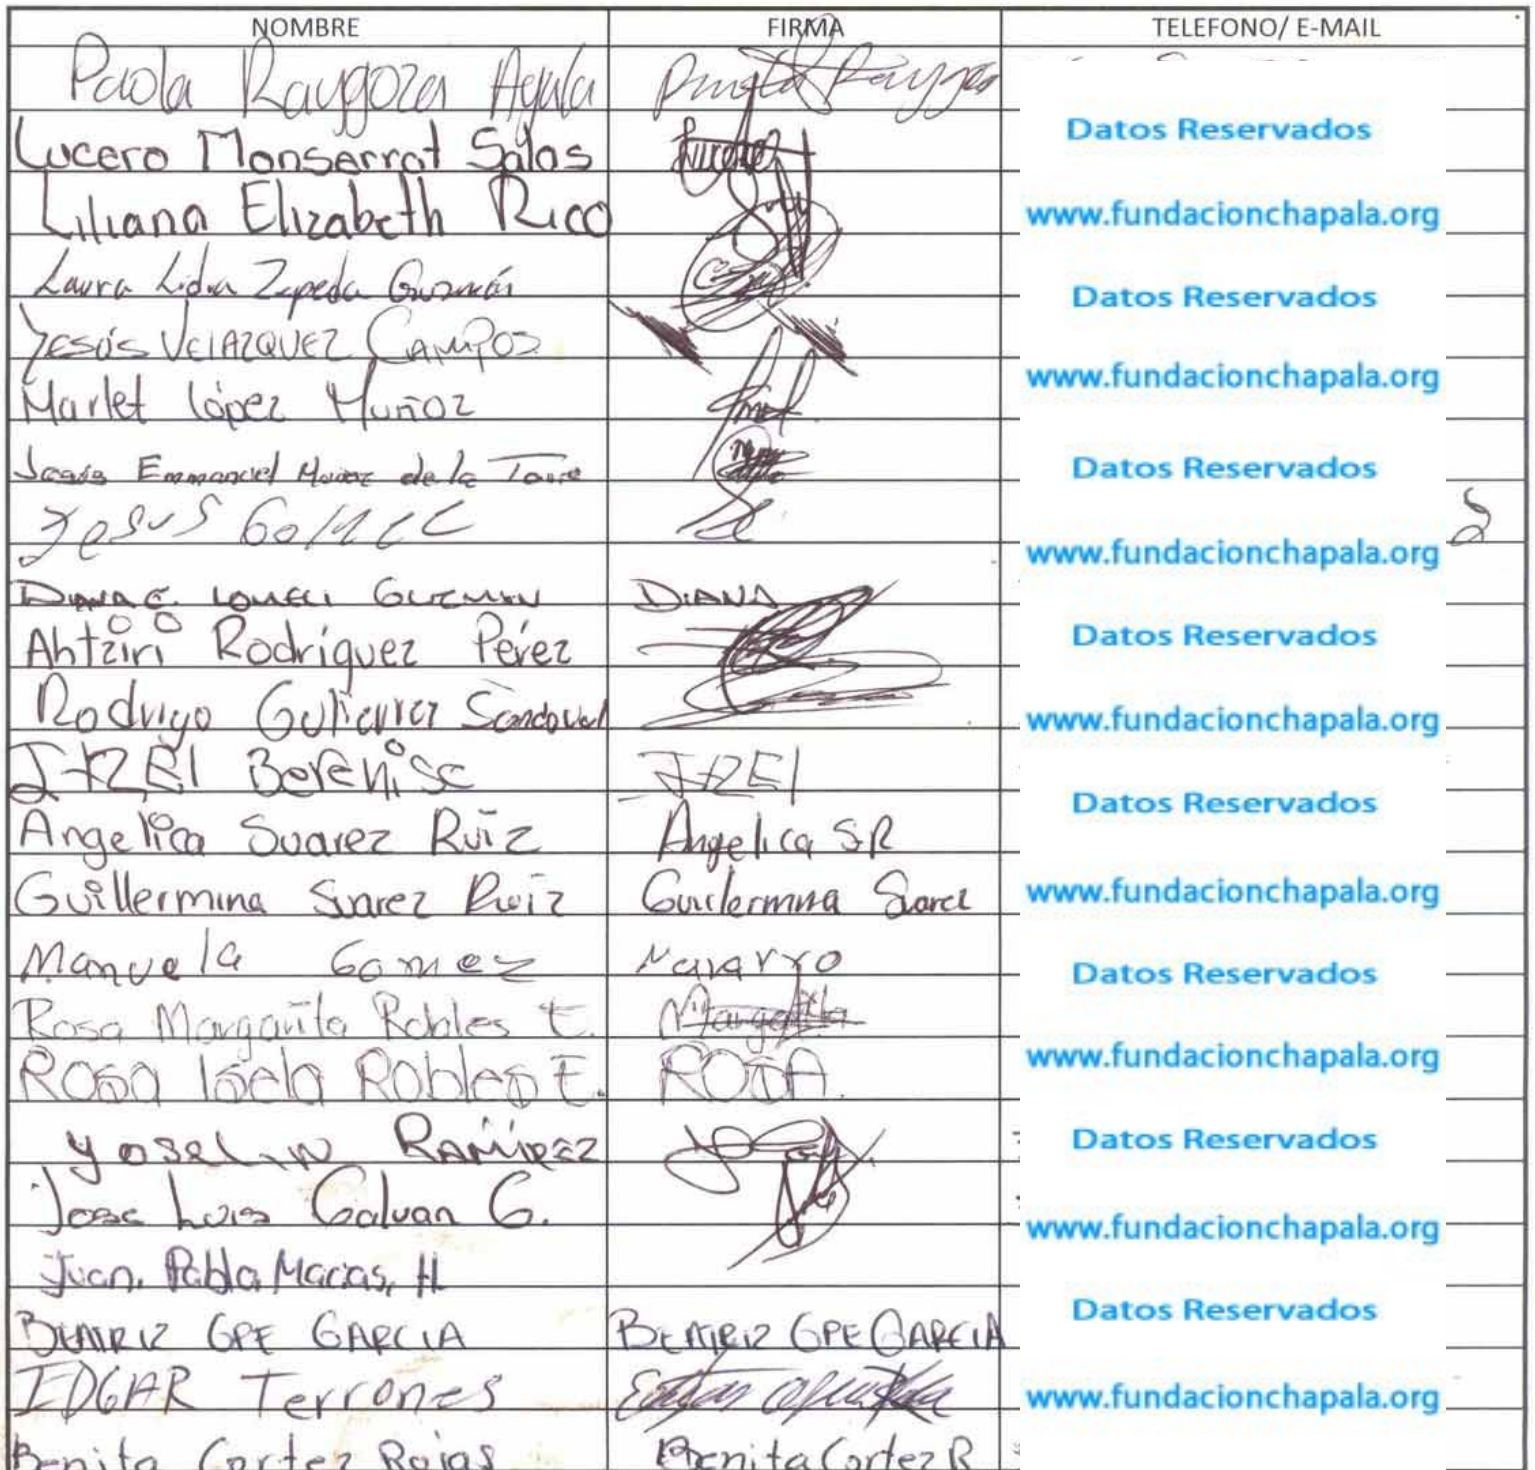 NOMBRE FIRMA TELEFONO/ E-MAIL
Paola Raygoza Ayala
Datos Reservados
Lucero Monserrat Salas Lucero
Liliana Elizabeth Rico www.fundacionchapala.org
Laura Lidia Zepeda Guzmán Datos Reservados
Jesús VElAZQUEZ CAMPOS
www.fundacionchapala.org
Marlet López Muñoz
Jesús Emmanuel Muñoz de la Torre Datos Reservados
Jesus Gomez
www.fundacionchapala.org
DIANA E. LOMELI GUZMAN DIANA
Ahtziri Rodríguez Pérez Datos Reservados
Rodrigo Gutierrez Sandoval www.fundacionchapala.org
ITZEl Berenise ITZEl
Datos Reservados
Angelica Suarez Ruiz Angelica S.R
Guillermina Suarez Ruiz Guillermina Suarez www.fundacionchapala.org
Manuela Gomez Navarro Datos Reservados
Rosa Margarita Robles E. Margarita
Rosa Isela Robles E. ROSA. www.fundacionchapala.org
Yoselin RAMIREZ Datos Reservados
Jose Luis Galvan G. www.fundacionchapala.org
Juan. Pablo Macias, H
Datos Reservados
BEATRIZ GPE GARCIA BEATRIZ GPE GARCIA
EDGAR Terrones www.fundacionchapala.org
Benita Cortez Rojas Benita Cortez R